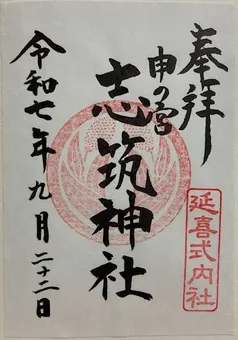 奉拝
申の宮
志筑神社
令和七年九月二十二日
延喜式内社